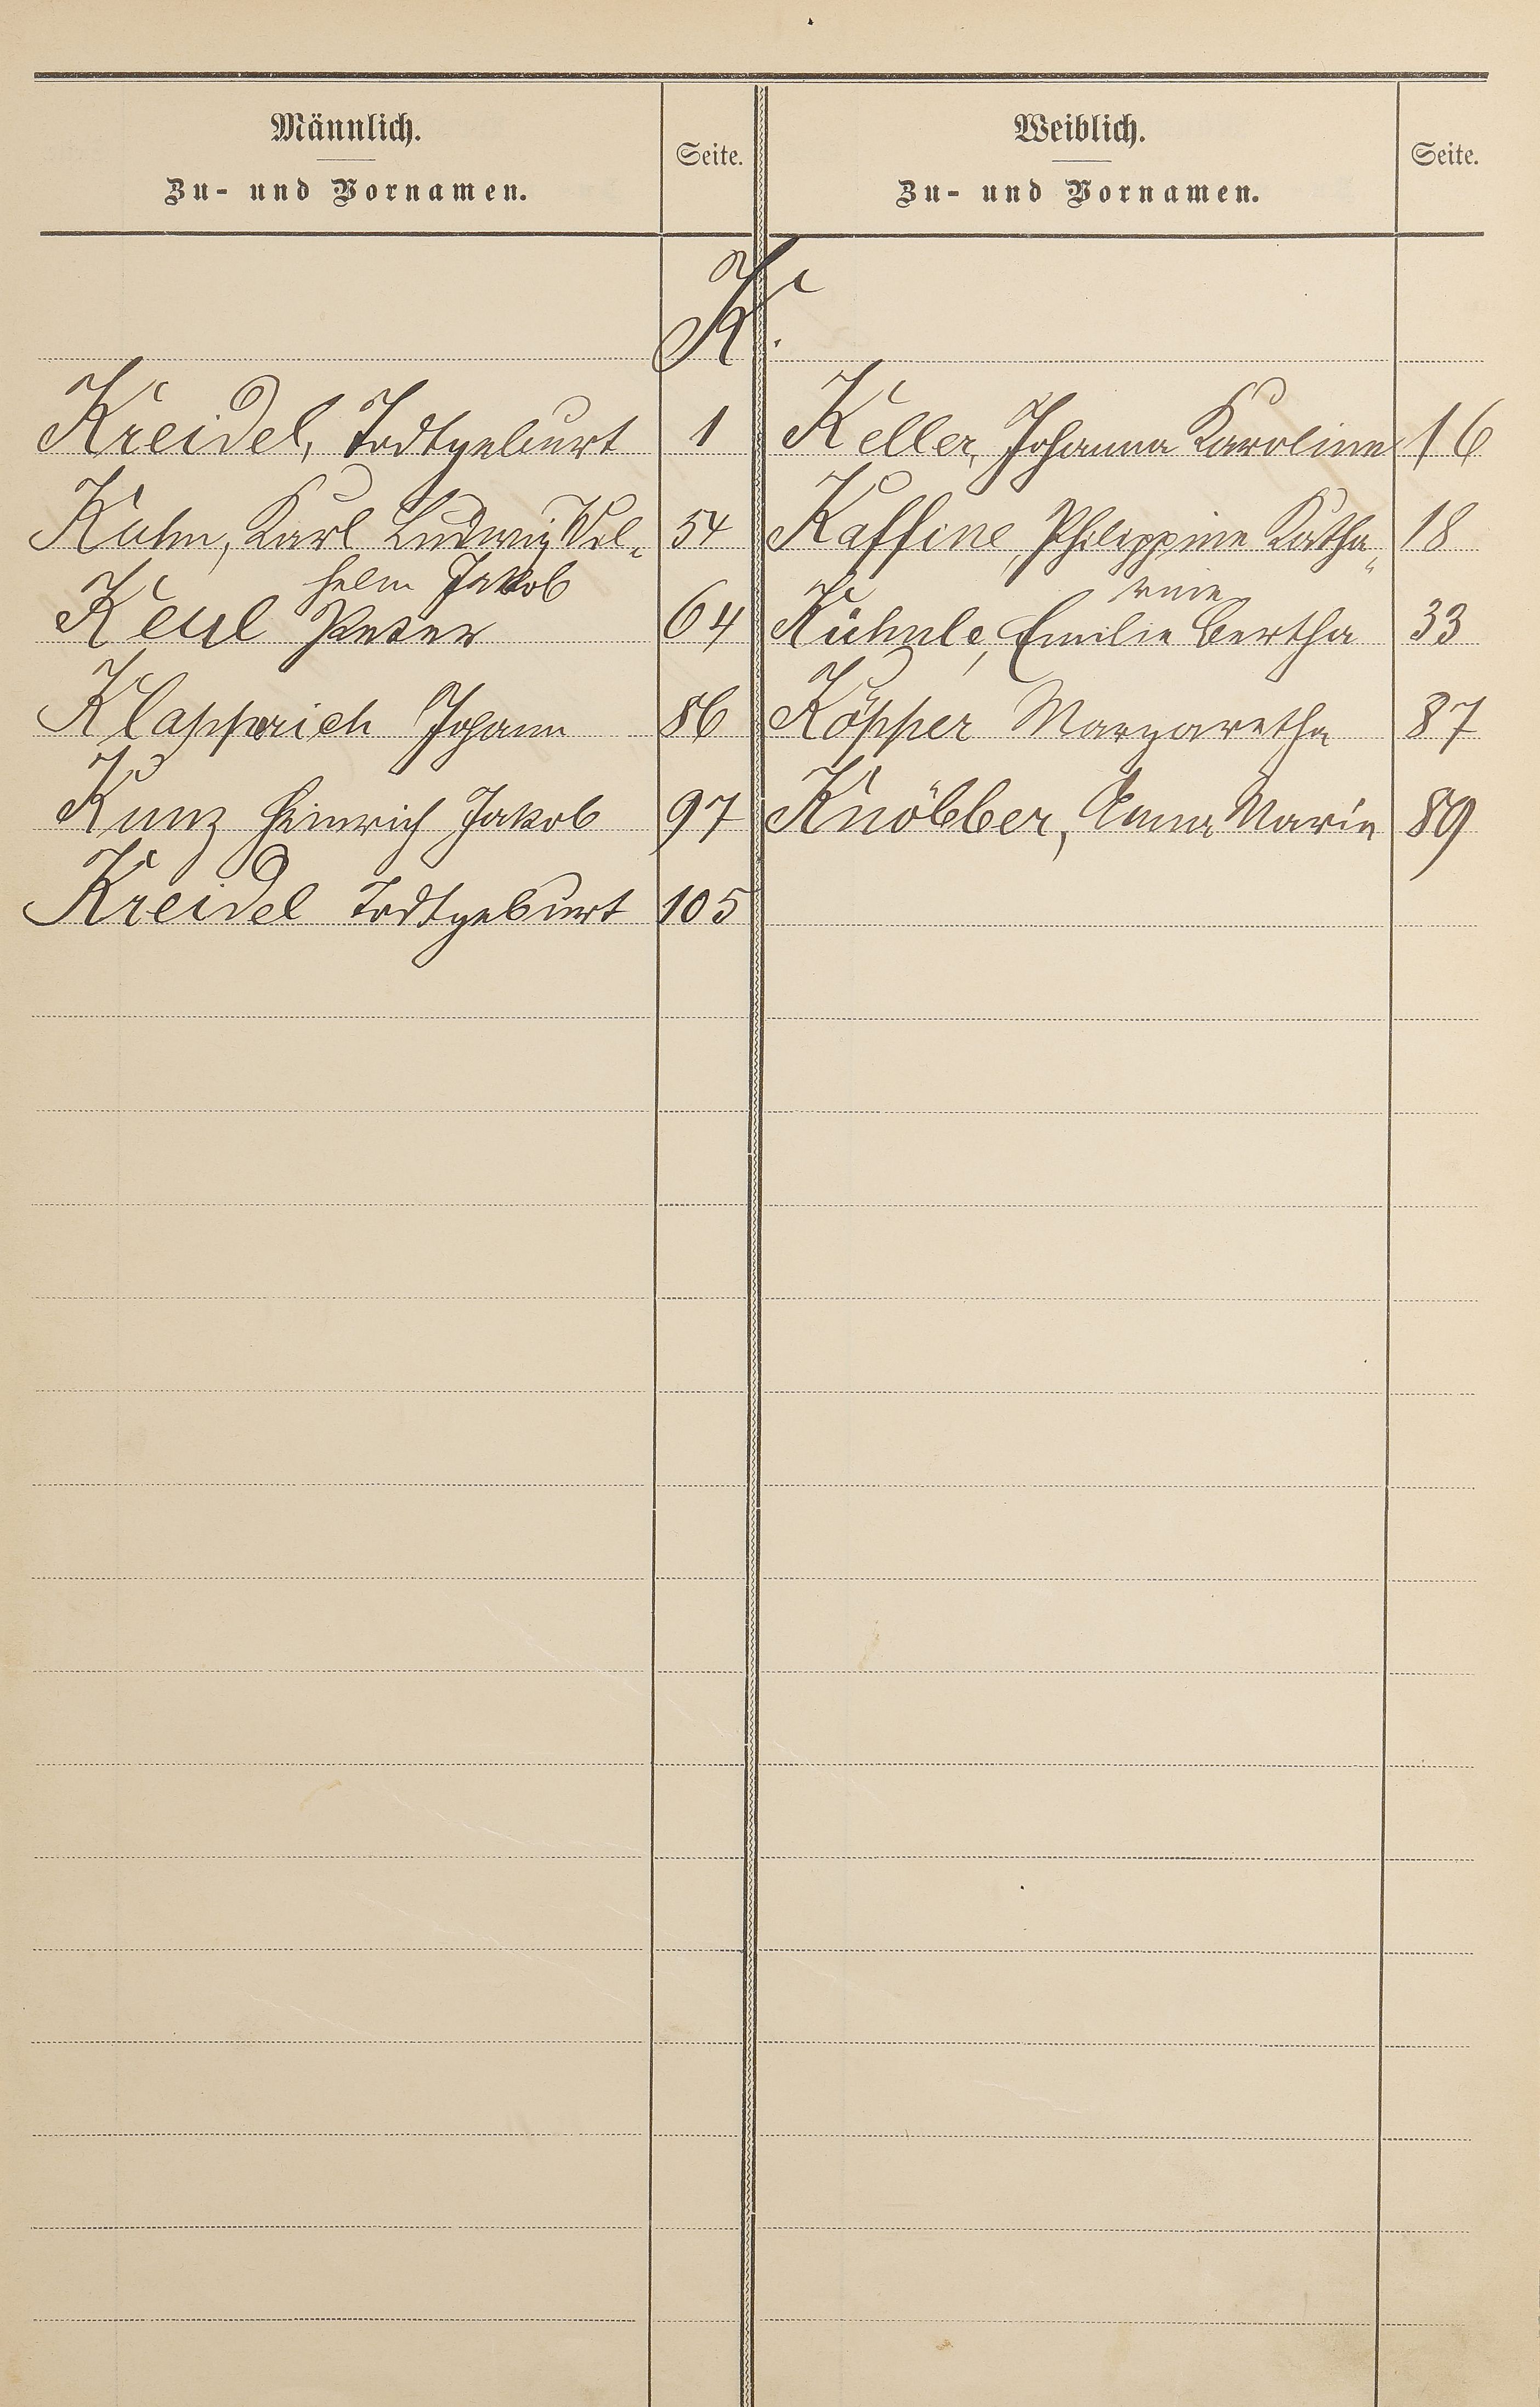 Männlich.
Zu- und Vornamen.
Seite.
Weiblich.
Zu- und Vornamen.
Seite.
K.
Kreidel, Todtgeburt 1
Keller, Johanna Karoline 16
Kuhn, Karl Ludwig Wil-
helm Jakob 54
Kaffine, Philippine Katha-
rine 18
Keul Peter 64
Kühnle, Emilie Bertha 33
Klapprich Johann 86
Köpper Margaretha 87
Kunz Heinrich Jakob 97
Knöbber, Anna Marie 89
Kreidel Todtgeburt 105